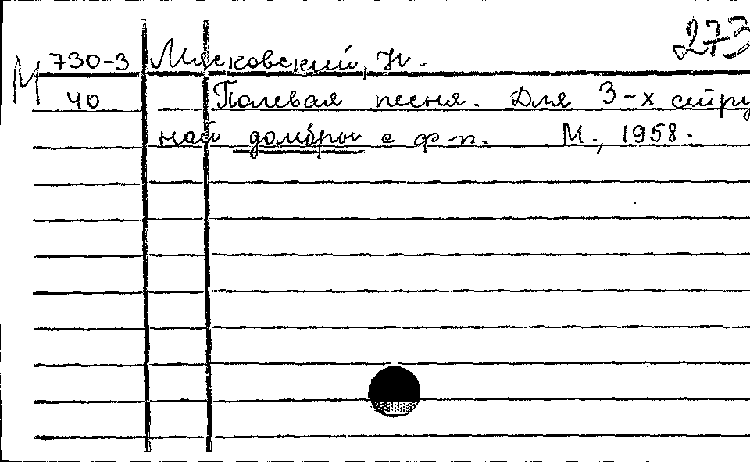 273
М 730-3 Мясковский, Н.
40 Полевая песня. Для 3-х стру
ной домбры с ф-п. М., 1958.